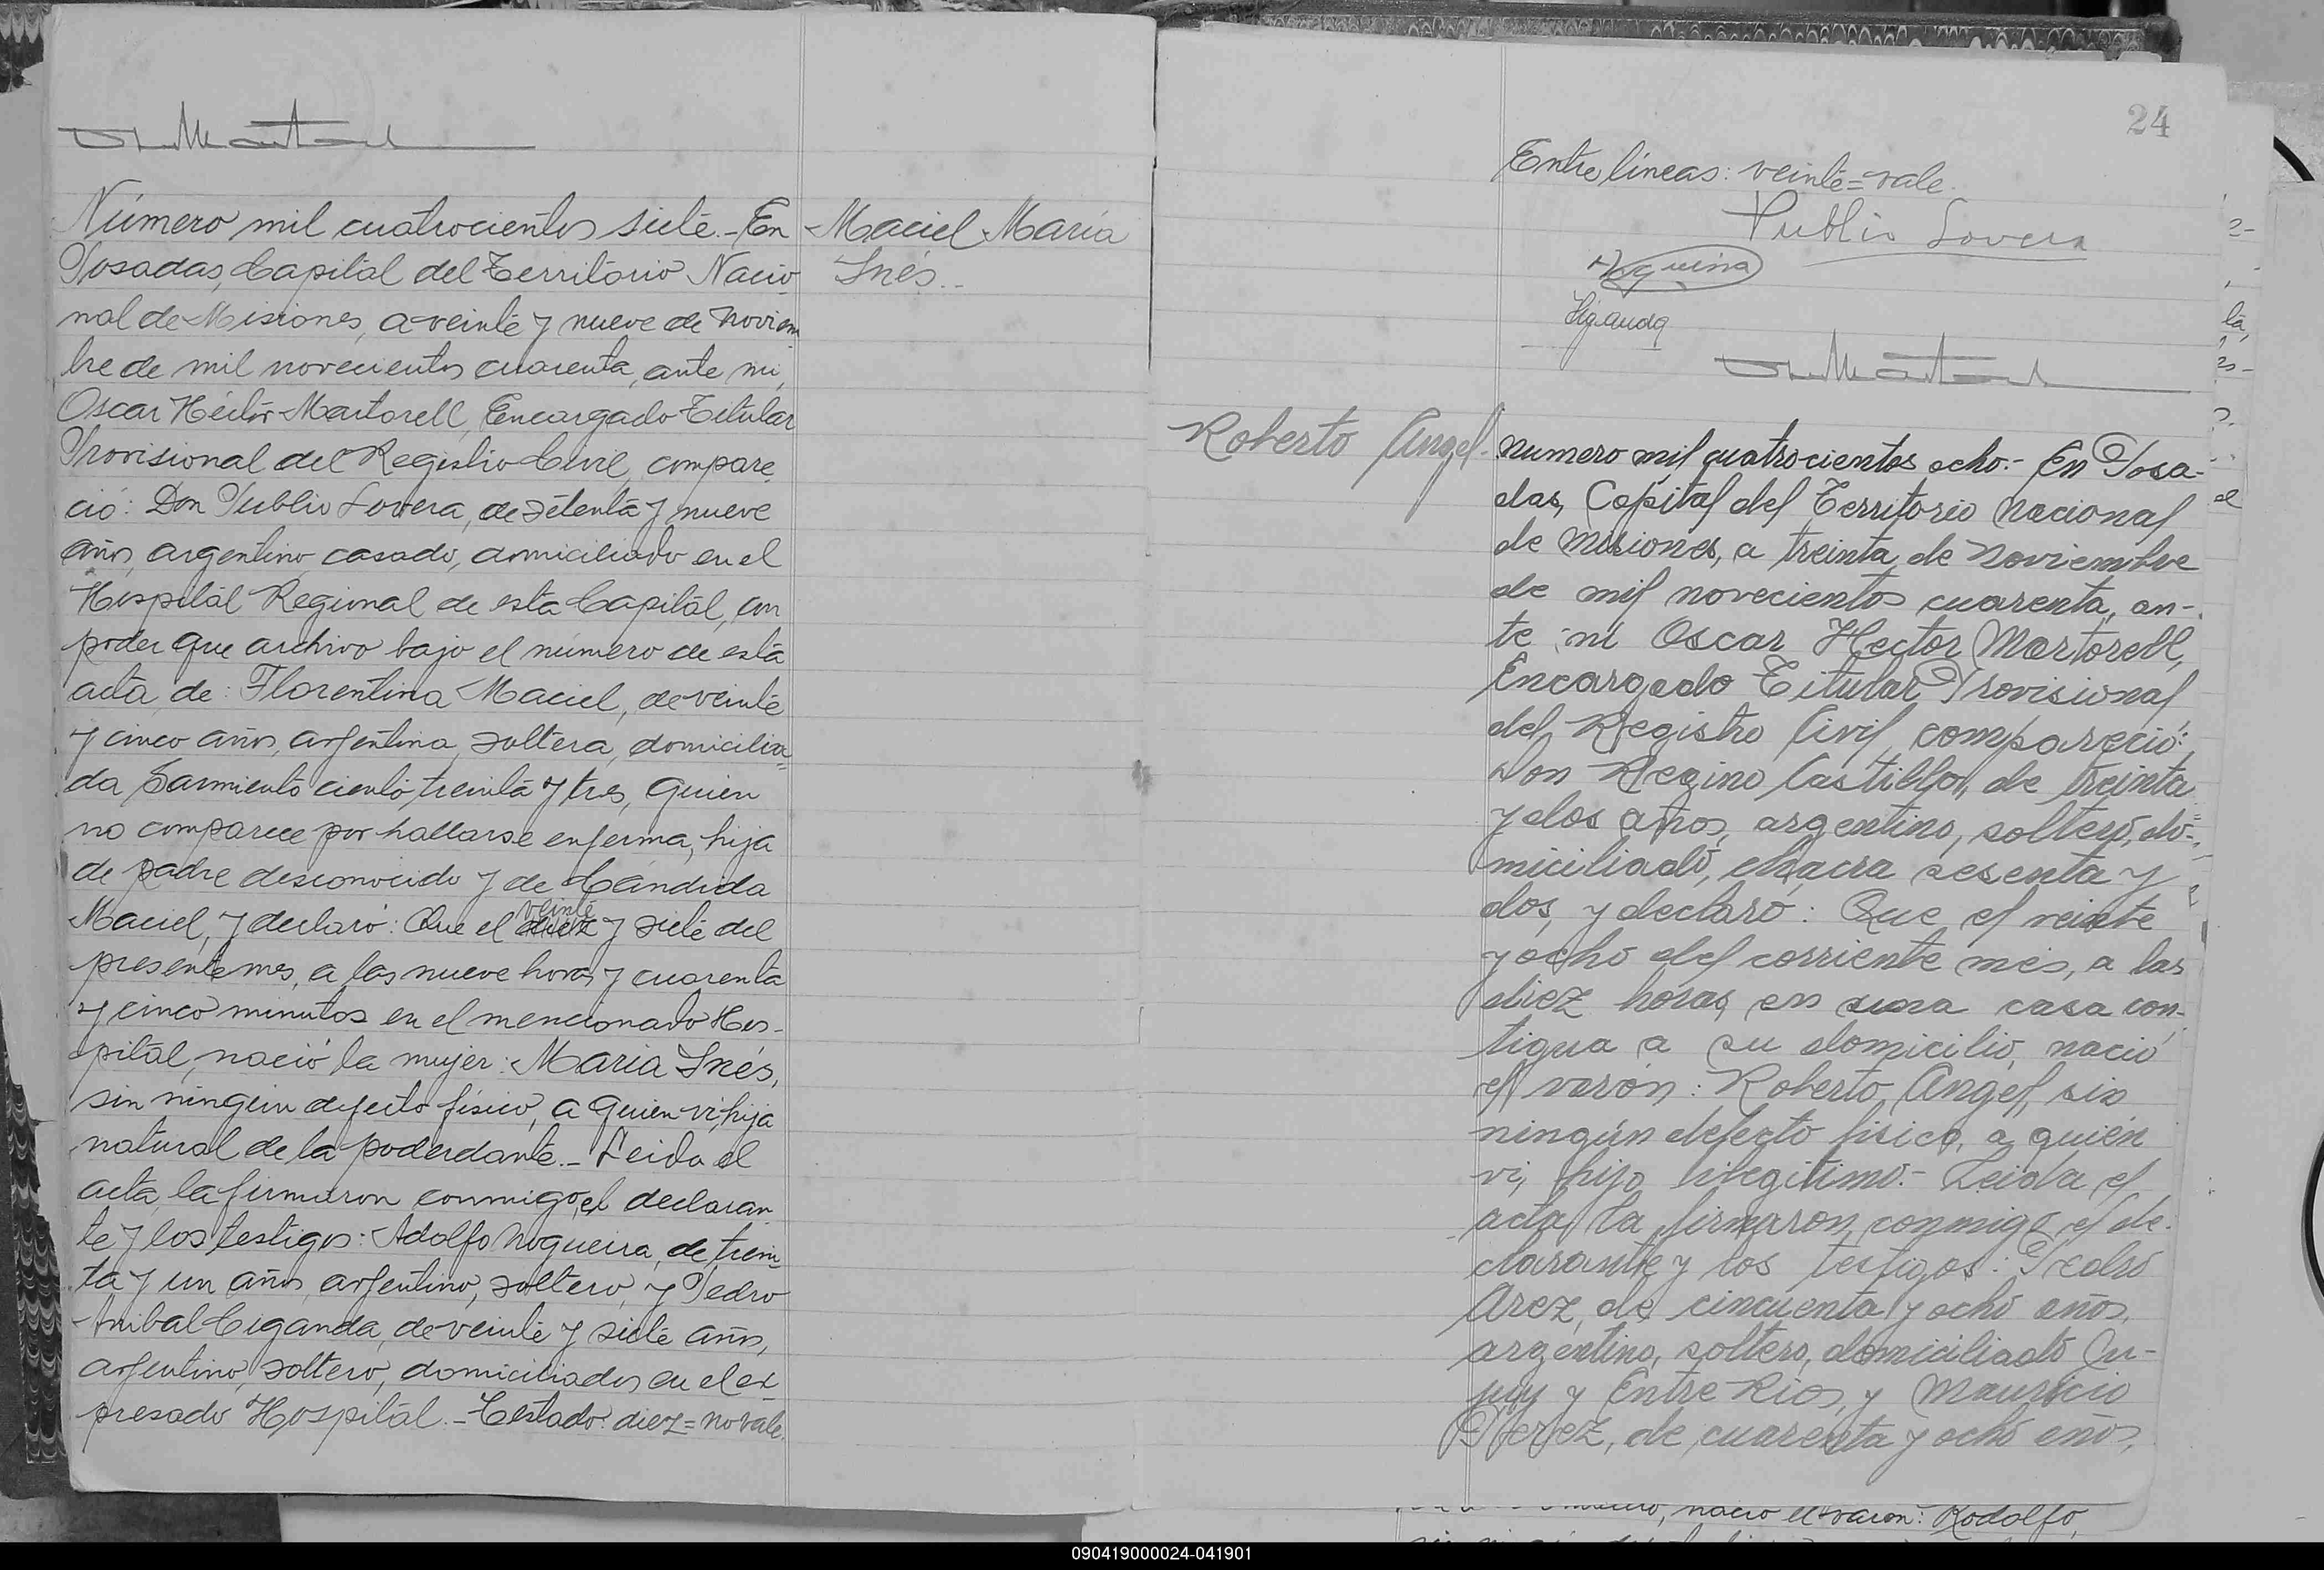 Número mil cuatrocientos siete.- En
Posadas, Capital del Territorio Nacio-
nal de Misiones, a veinte y nueve de Noviem-
bre de mil novecientos cuarenta, ante mi,
Oscar Héctor Martorell, Encargado Titular
Provisional del Registro Civil, compare-
ció: Don Publio Lovera, de setenta y nueve
años, argentino, casado, domiciliado en el
Hospital Regional de esta Capital, con
poder que archivo bajo el número de esta
acta, de: Florentina Maciel, de veinte
y cinco años, argentina, soltera, domicilia-
da Sarmiento ciento treinta y tres, quien
no comparece por hallarse enferma, hija
de padre desconocido y de Cándida
veinte
Maciel, y declaró: Que el diez y siete del
presente mes, a las nueve horas y cuarenta
y cinco minutos en el mencionado Hos-
pital, nació la mujer: María Inés,
sin ningún defecto físico, a quien vi, hija
natural de la poderdante.- Leida el
acta, la firmaron conmigo, el declaran-
te y los testigos: Adolfo Nogueira, de trein-
ta y un años, argentino, soltero, y Pedro
Anibal Ciganda, de veinte y siete años,
argentino, soltero, domiciliados en el ex-
presado Hospital.- Testado: diez = no vale.
Maciel María
Inés..
24
Entre líneas: veinte = vale.
Publio Lovera
Ciganda
Roberto Angel.-
Numero mil cuatrocientos ocho.- En Posa-
das, Capital del Territorio Nacional
de Misiones, a treinta de Noviembre
de mil novecientos cuarenta, an-
te mi Oscar Hector Martorell,
Encargado Titular Provisional
del Registro Civil, compareció:
Don Regino Castillo, de treinta
y dos años, argentino, soltero, do-
miciliado, chacra sesenta y
dos, y declaró: Que el veinte
y ocho del corriente mes, a las
diez horas, en una casa con-
tigua a su domicilio, nació
el varón: Roberto Angel, sin
ningún defecto fisico, a quien
vi, hijo ilegitimo.- Leida el
acta, la firmaron conmigo, el de-
clarante y los testigos: Pedro
Arez, de cincuenta y ocho años,
argentino, soltero, domiciliado Ju-
juy y Entre Rios, y Mauricio
Perez, de cuarenta y ocho años,
nació el varon: Rodolfo,
090419000024-041901